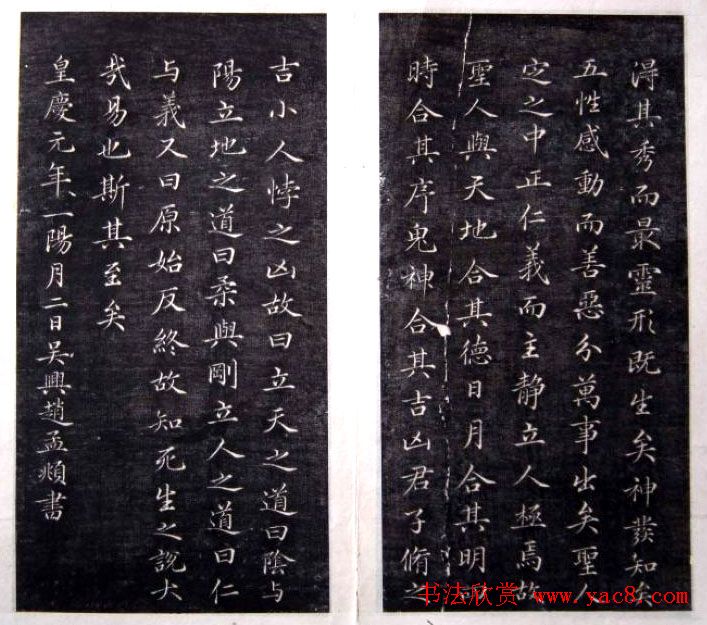 淂其秀而最靈形既生矣神發知矣
五性感動而善惡分萬事出矣聖人
定之中正仁義而主静立人極焉故
聖人與天地合其德日月合其明四
時合其序鬼神合其吉凶君子脩之
吉小人悖之凶故曰立天之道曰陰与
陽立地之道曰柔與剛立人之道曰仁
与義又曰原始反終故知死生之說大
哉易也斯其至矣
皇慶元年一陽月二日吴興趙孟頫書
书法欣赏 www.yac8.com